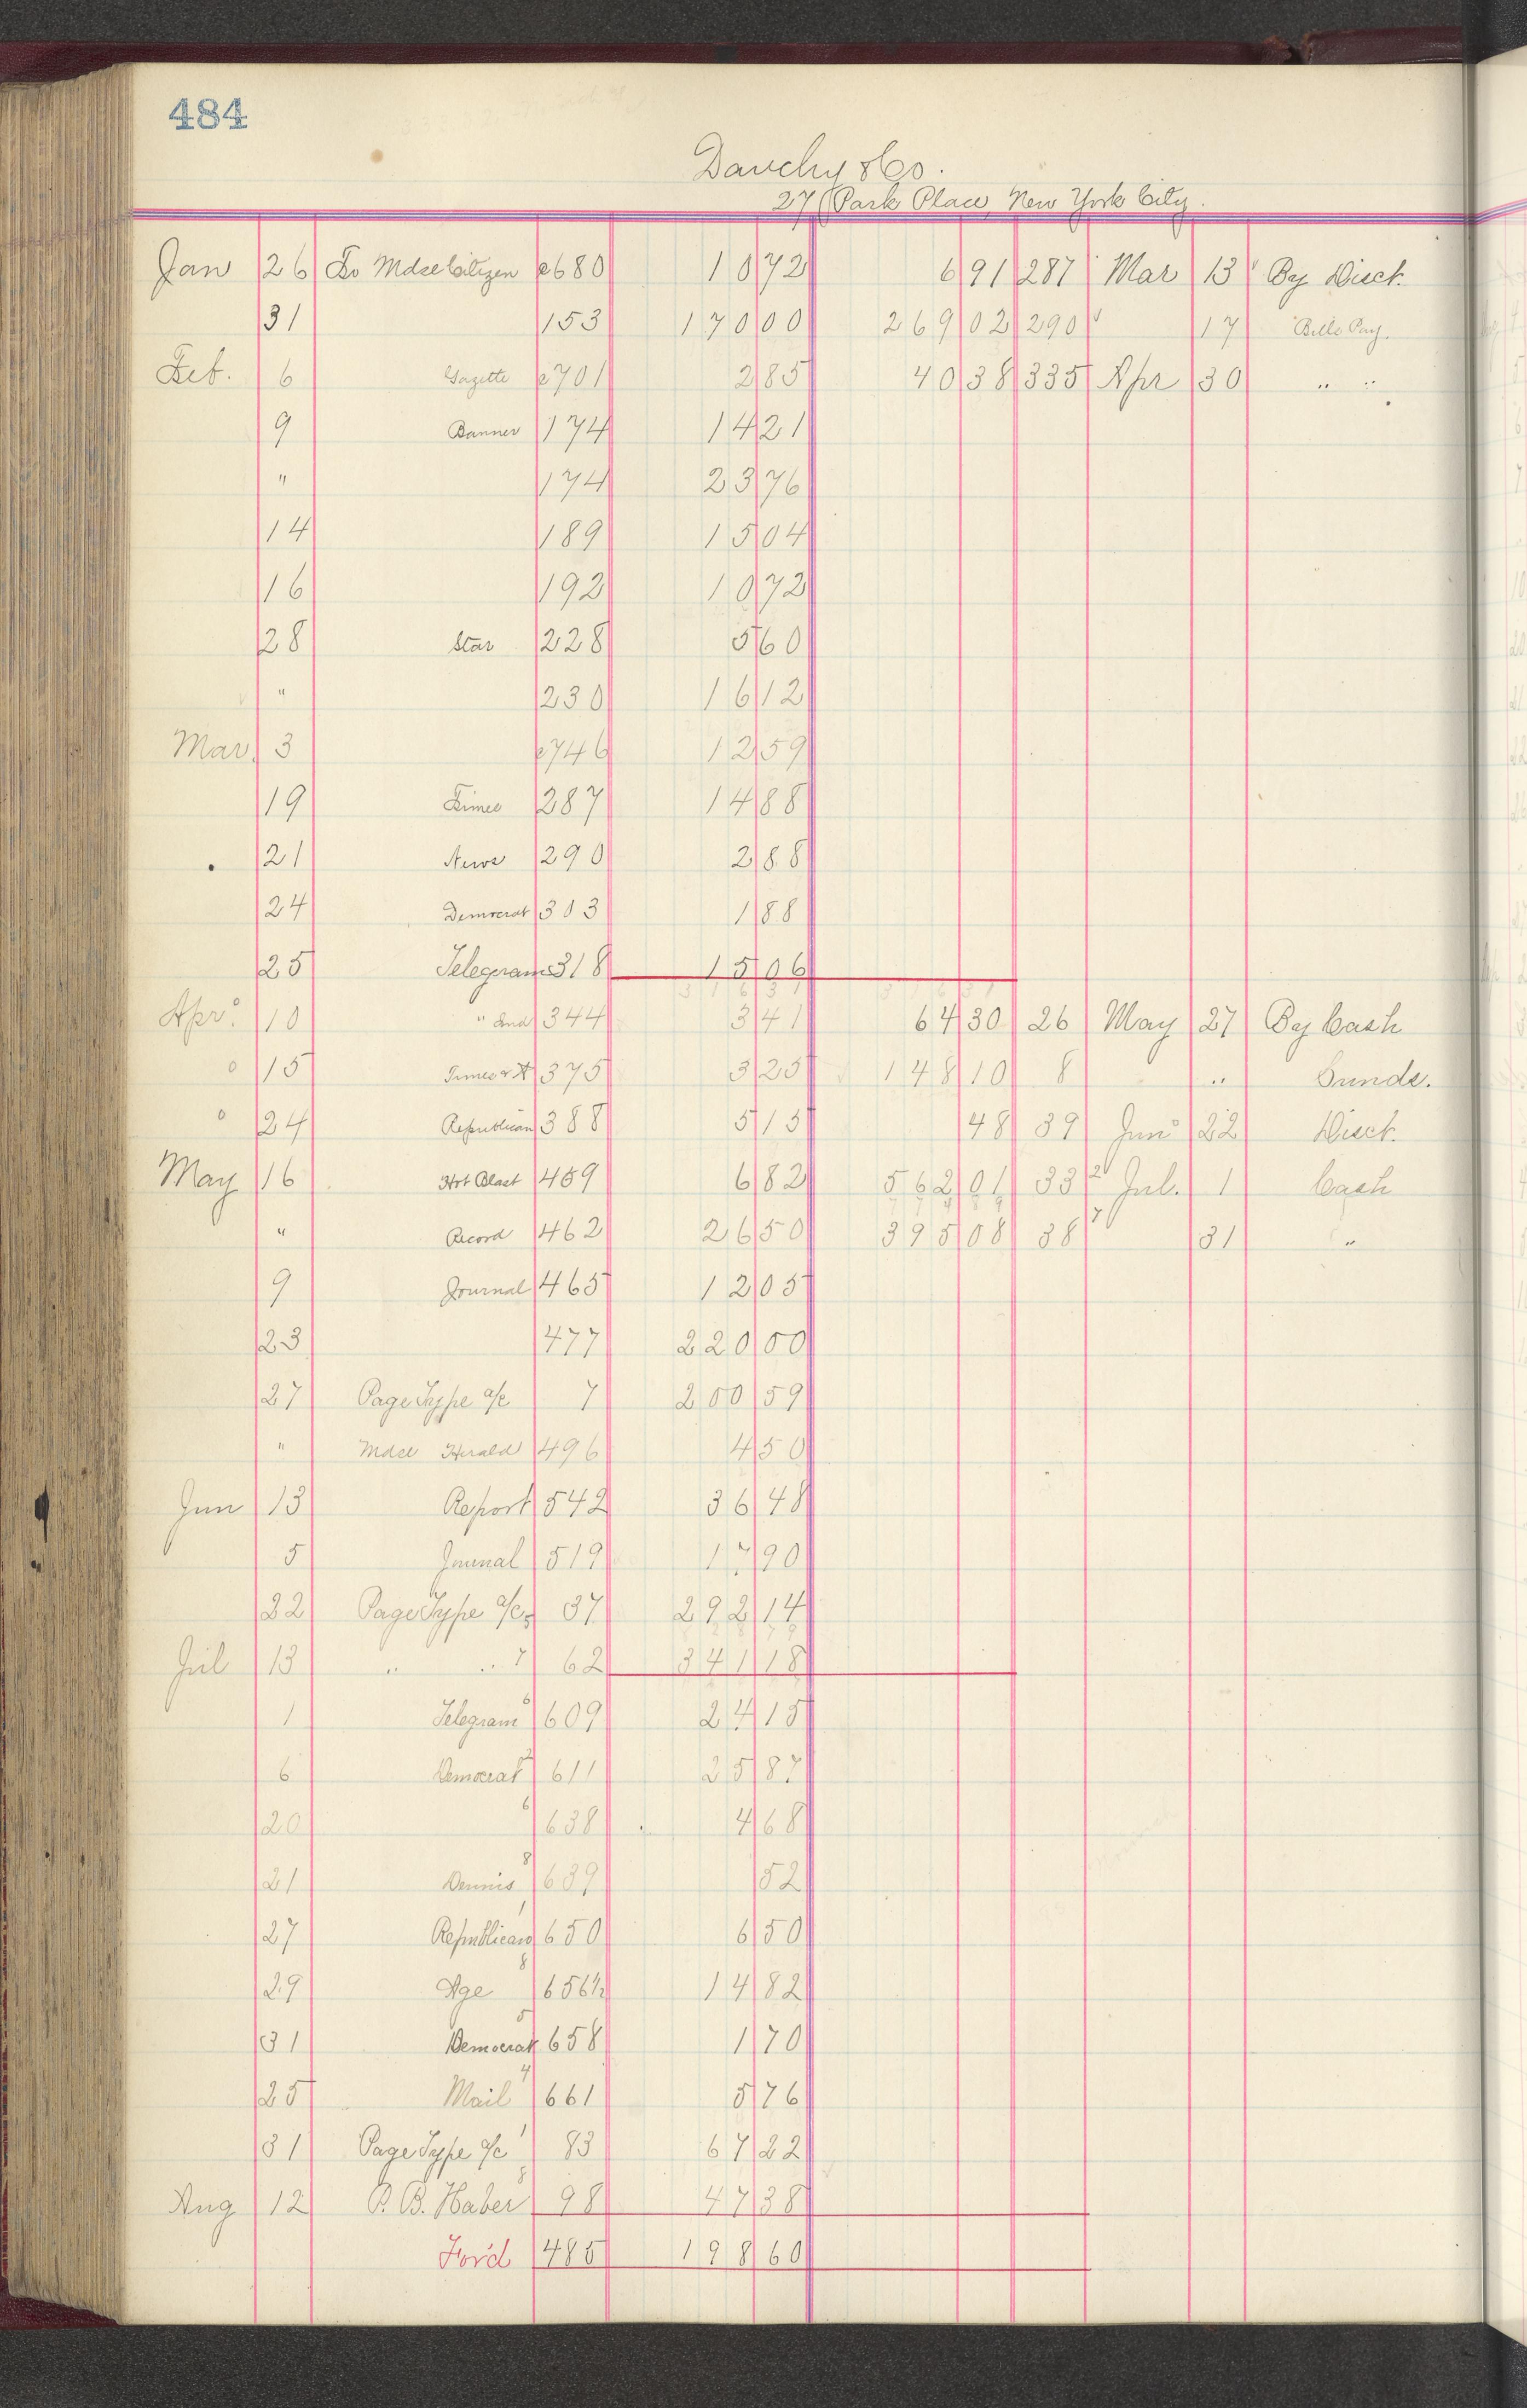 484
Dauchy & Co.
27 Park Place, New York City.
Jan 26 To Mdse Citizen e680 10 72 6 91 287 Mar 13 By Disct.
31 153 170 00 269 02 290 17 Bills Pay.
Feb. 6 Gazette e701 2 85 40 38 335 Apr 30 " "
9 Banner 174 14 21
" 174 23 76
14 189 15 04
16 192 10 72
28 Star 228 5 60
" 230 16 12
Mar. 3 e746 12 59
19 Times 287 14 88
21 News 290 2 88
24 Democrat 303 1 88
25 Telegram 318 15 06
Apr. 10 " Ind 344 3 41 64 30 26 May 27 By Cash
15 Times & 375 3 25 148 10 8 " Sunds.
24 Republican 388 5 15 48 39 Jun 22 Disct.
May 16 Hot Blast 459 6 82 562 01 33 Jul. 1 Cash
" Record 462 26 50 395 08 38 31 "
9 Journal 465 12 05
23 477 220 00
27 Page Type a/c 7 200 59
" Mdse Herald 496 4 50
Jun 13 Report 542 36 48
5 Journal 519 17 90
22 Page Type a/c 37 292 14
Jul 13 " " 62 341 18
1 Telegram 609 24 15
6 Democrat 611 25 87
20 638 4 68
21 Dennis 639 52
27 Republican 650 6 50
29 Age 656½ 14 82
31 Democrat 658 1 70
25 Mail 661 5 76
31 Page Type a/c 83 67 22
Aug 12 P. B. Haber 98 47 38
For'd 485 198 60